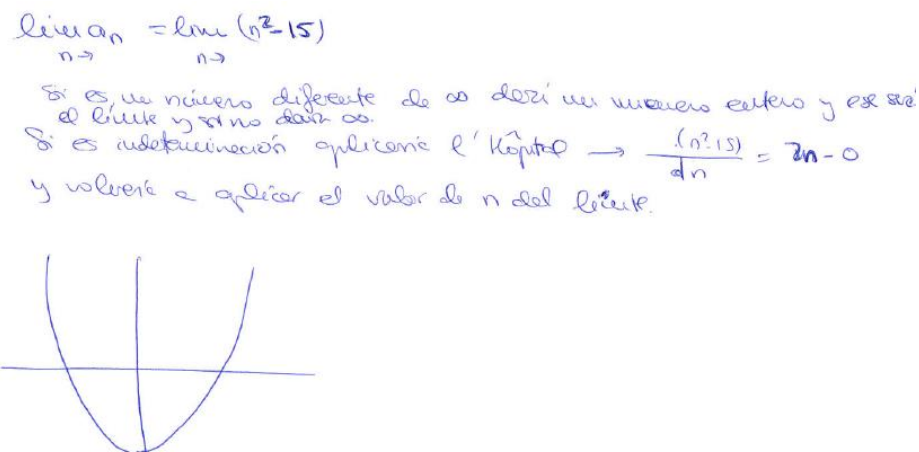 lim aₙ = lim (n²-15)
n→ n→
Si es un número diferente de ∞ dará un número entero y ese será
el límite y si no dará ∞.
Si es indeterminación aplicaría l'Hôpital → (n²-15) / dn = 2n-0
y volvería a aplicar el valor de n del límite.